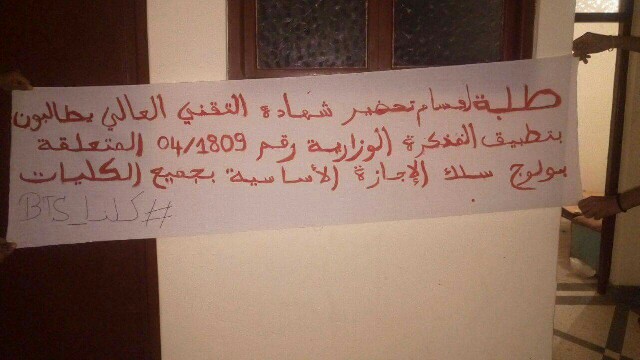 طلبة أقسام تحضير شهادة التقني العالي يطالبون
بتطبيق المذكرة الوزارية رقم 04/1809 المتعلقة
بولوج سلك الإجازة الأساسية بجميع الكليات.
#كلنا_BTS